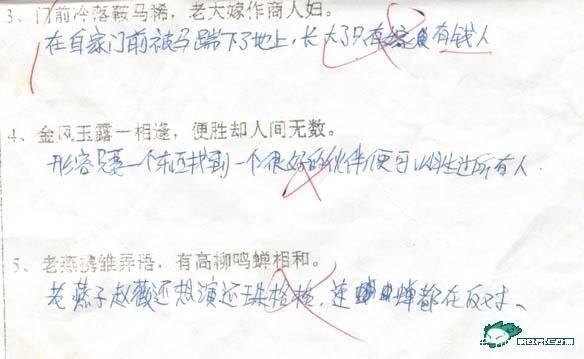 3、门前冷落鞍马稀，老大嫁作商人妇。
在自家门前被马踹下了地上，长大了只有嫁有钱人
4、金风玉露一相逢，便胜却人间无数。
形容只要一个东西找到一个很好的伙伴便可以胜过所有人．
5、老燕携雏弄语，有高柳鸣蝉相和。
老燕子赵薇还想演还珠格格，连蝉都在反对、